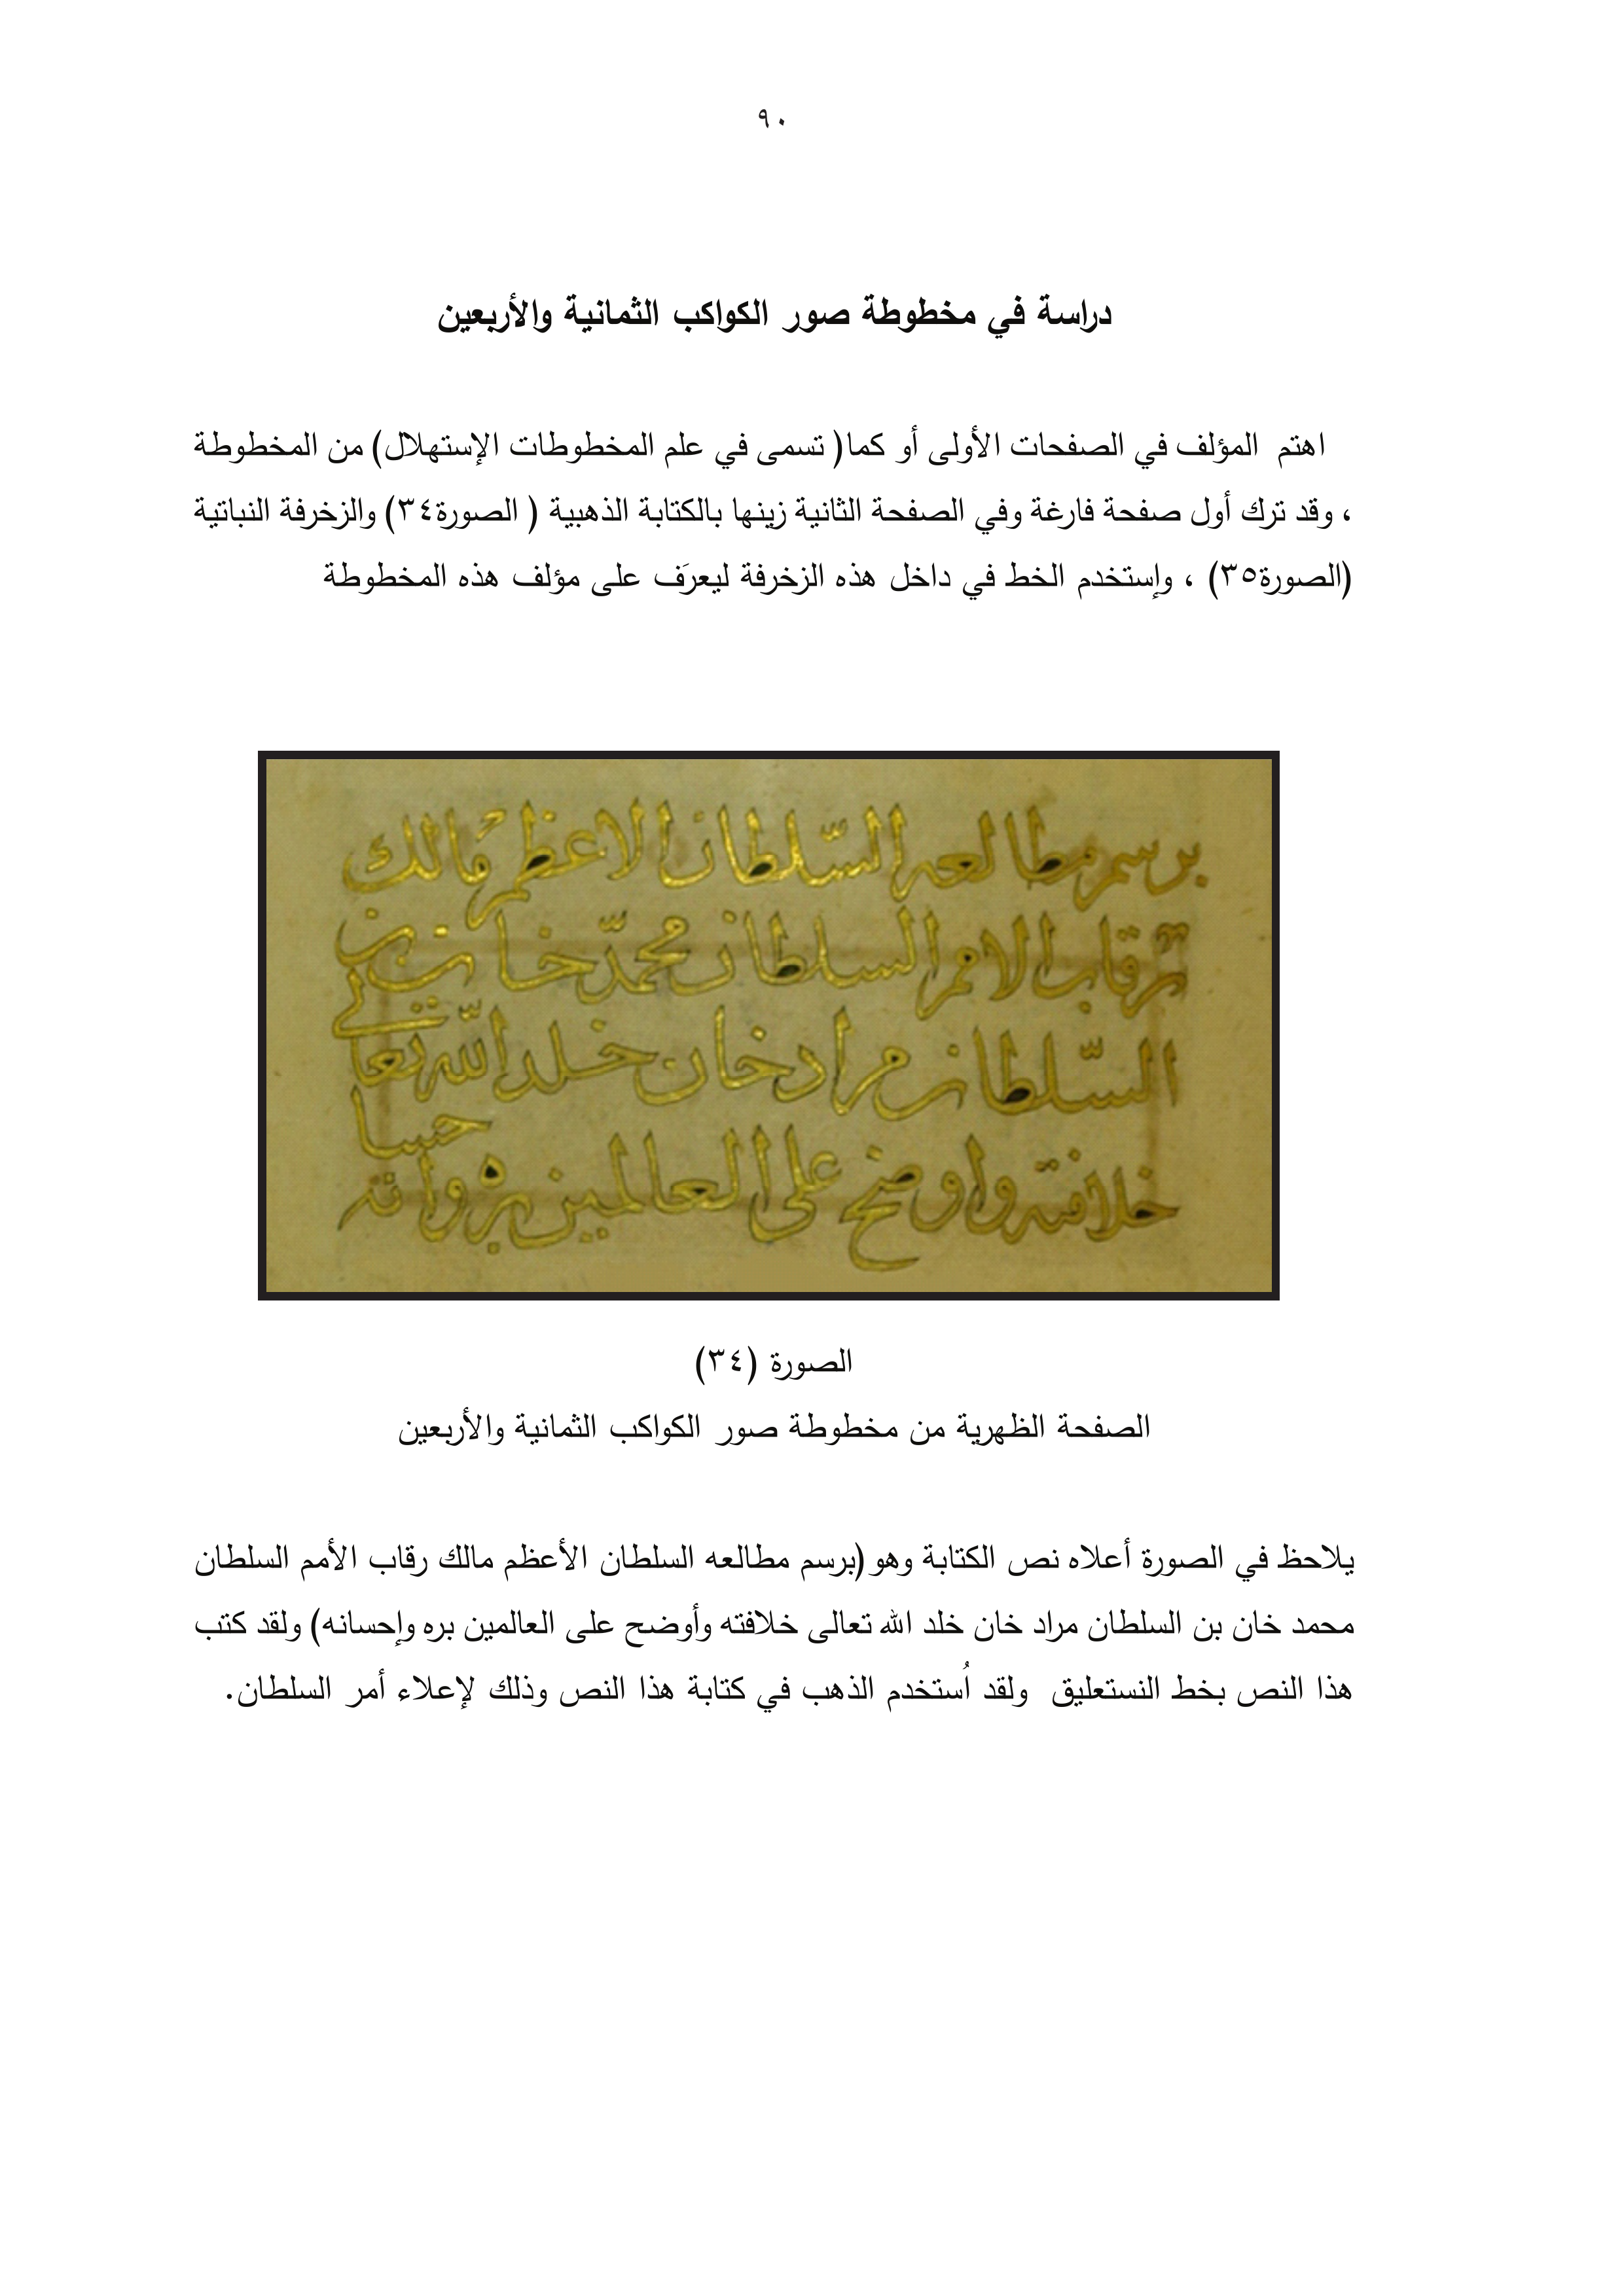 ٩٠
دراسة في مخطوطة صور الكواكب الثمانية والأربعين
اهتم المؤلف في الصفحات الأولى أو كما( تسمى في علم المخطوطات الإستهلال) من المخطوطة
، وقد ترك أول صفحة فارغة وفي الصفحة الثانية زينها بالكتابة الذهبية ( الصورة٣٤) والزخرفة النباتية
(الصورة٣٥) ، وإستخدم الخط في داخل هذه الزخرفة ليعرَف على مؤلف هذه المخطوطة
برسم مطالعه السّلطان الاعظم مالك
رقاب الامم السلطان محمّد خان بن
السّلطان مراد خان خلد الله تعالى
خلافته واوضح على العالمين بره واحسانه
الصورة (٣٤)
الصفحة الظهرية من مخطوطة صور الكواكب الثمانية والأربعين
يلاحظ في الصورة أعلاه نص الكتابة وهو(برسم مطالعه السلطان الأعظم مالك رقاب الأمم السلطان
محمد خان بن السلطان مراد خان خلد الله تعالى خلافته وأوضح على العالمين بره وإحسانه) ولقد كتب
هذا النص بخط النستعليق ولقد اُستخدم الذهب في كتابة هذا النص وذلك لإعلاء أمر السلطان.